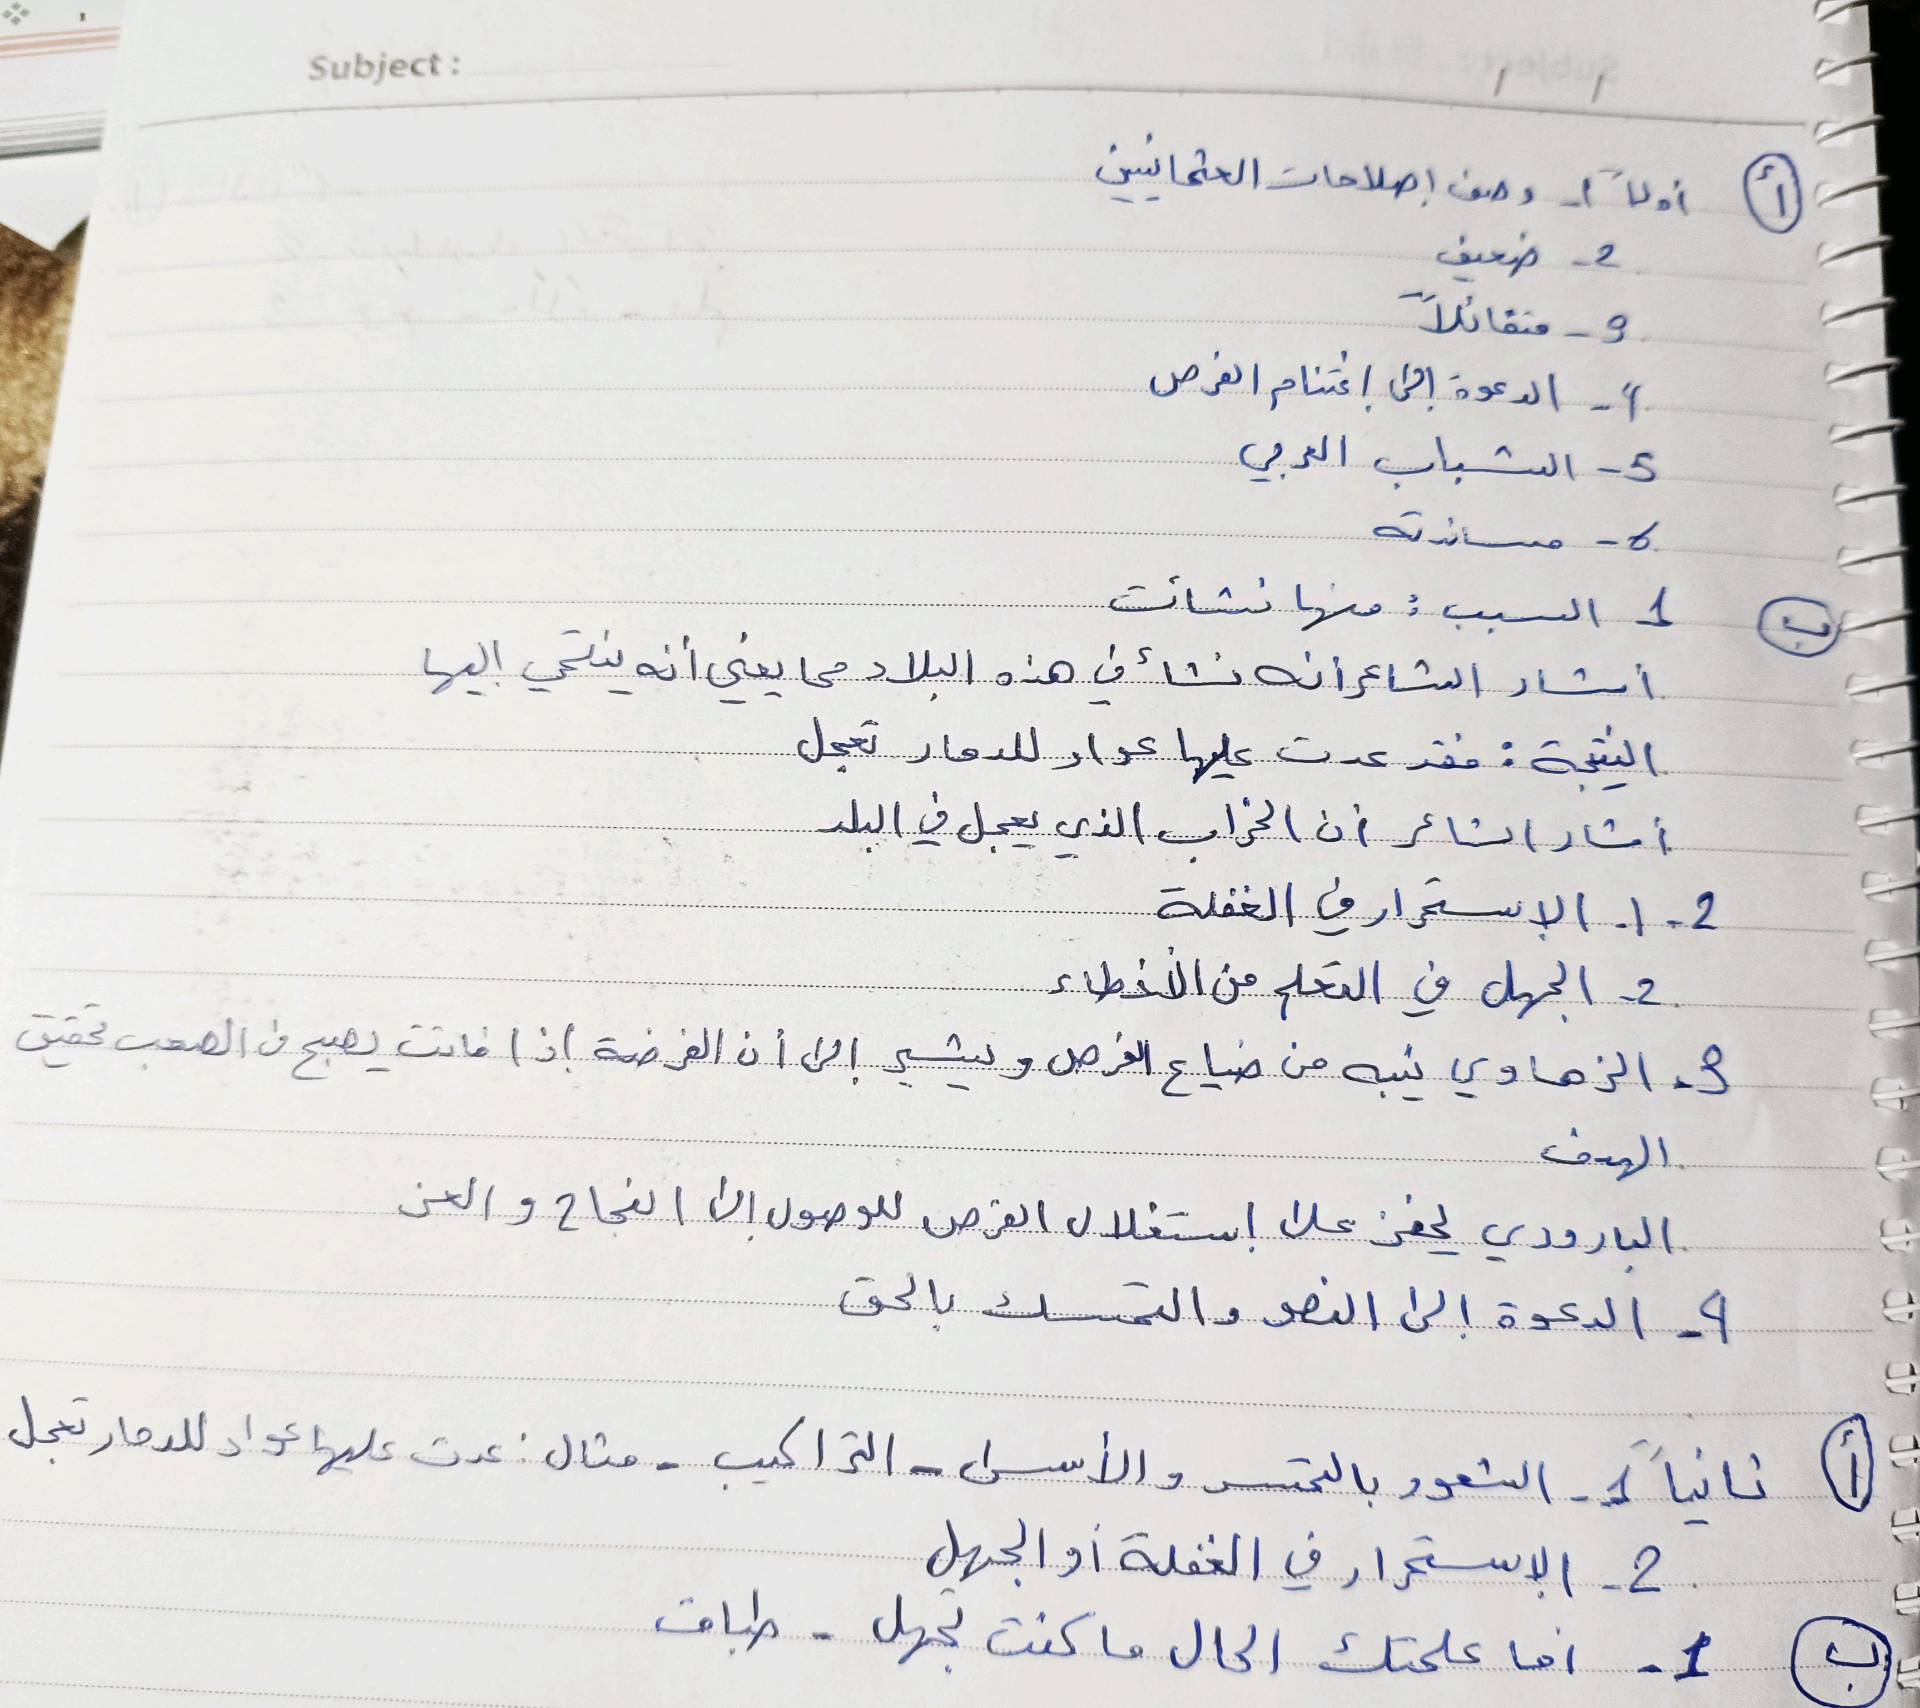 Subject:
أ أولاً 1- وصف إصلاحات العثمانيين
2- ضعيف
3- متفائلاً
4- الدعوة إلى إغتنام الفرص
5- الشباب العربي
6- مساندته
ب 1 السبب : منها نشأت
أشار الشاعر أنه نشأ في هذه البلاد مما يعني أنه ينتمي إليها
النتيجة : فقد عدت عليها عواد للدمار تعجل
أشار الشاعر أن الخراب الذي يعجل في البلد
2- 1. الإستمرار في الغفلة
2- الجهل في التعلم من الأخطاء
3- الزهاوي ينبه من ضياع الفرص ويشير إلى أن الفرصة إذا فاتت يصبح من الصعب تحقيق
الهدف
البارودي يحفز على إستغلال الفرص للوصول إلى النجاح و العز
4- الدعوة إلى النصو والتمسك بالحق
أ ثانياً 1- الشعور بالتحسر والأسى - التراكيب - مثال : عدت عليها عواد للدمار تعجل
2- الإستمرار في الغفلة أو الجهل
ب 1- أما علمتك الحال ما كنت تجهل - طباق